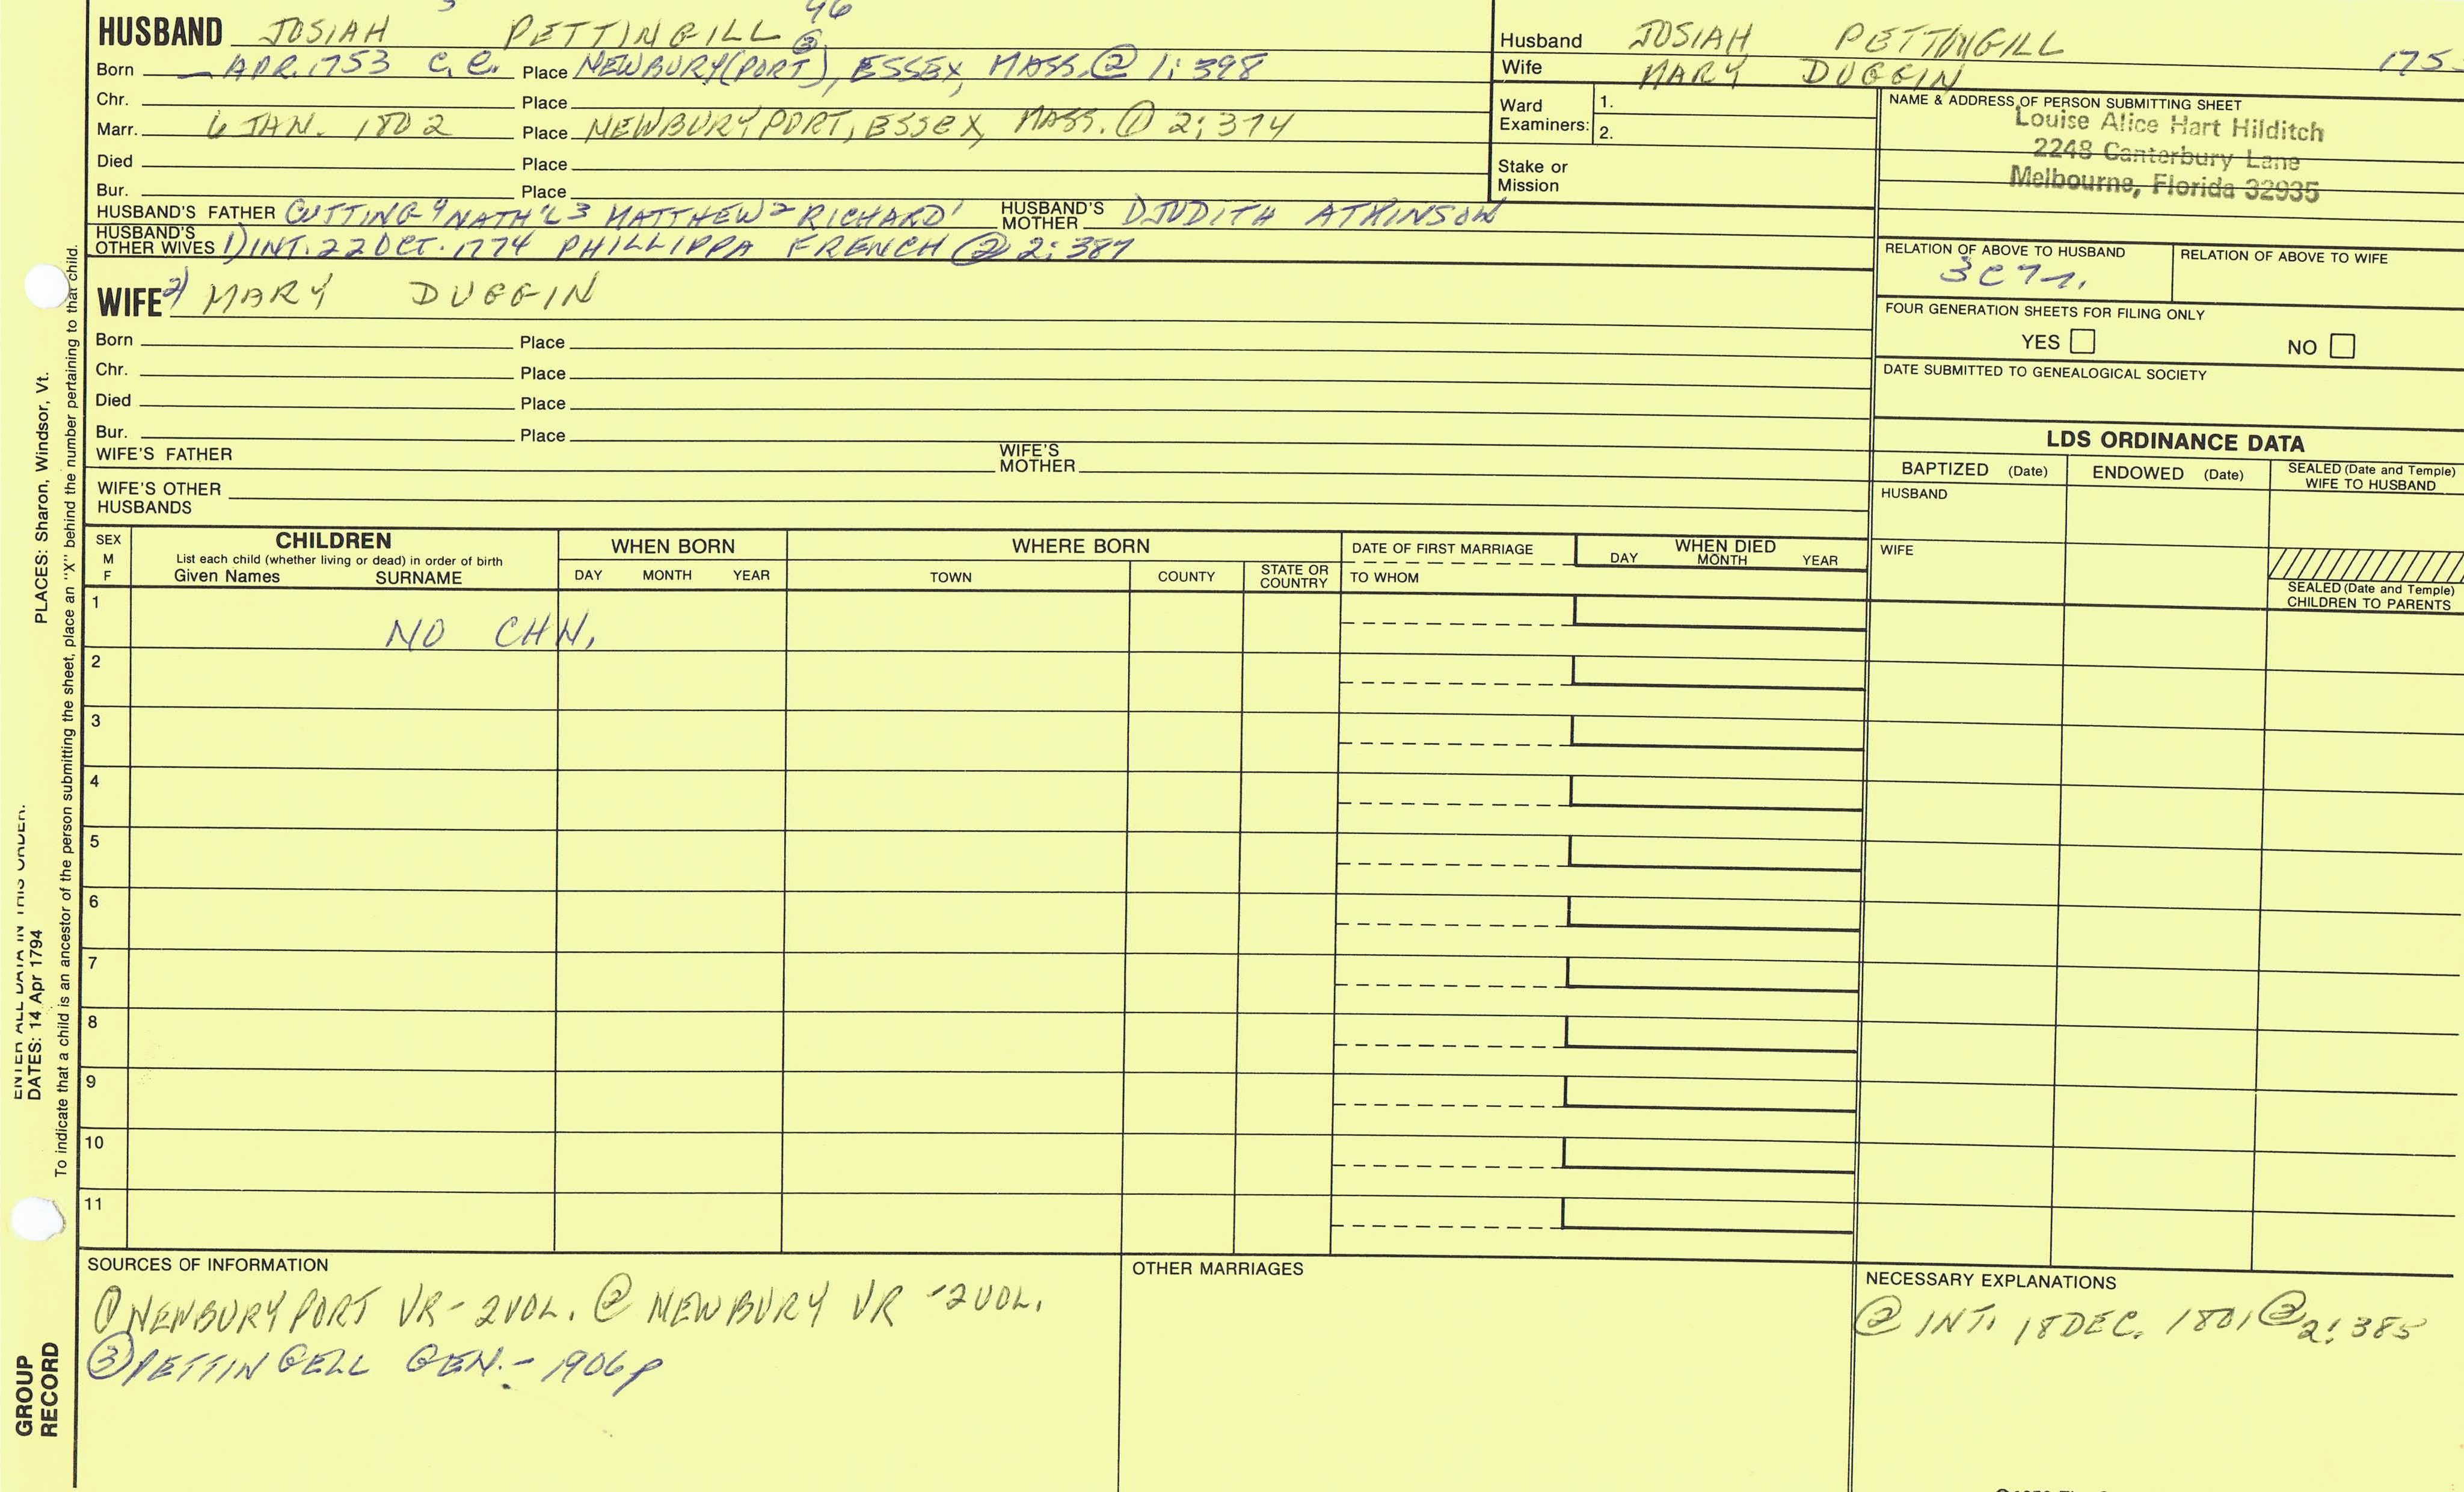 46
HUSBAND JOSIAH PETTINGILL ③
Born — APR. 1753 C.R. Place NEWBURY(PORT), ESSEX, MASS. ② 1:398
Chr. Place
Marr. 6 JAN. 1802 Place NEWBURYPORT, ESSEX, MASS. ① 2:374
Died Place
Bur. Place
HUSBAND'S FATHER CUTTING⁴ NATH'L³ MATTHEW² RICHARD¹ HUSBAND'S MOTHER JUDITH ATKINSON
HUSBAND'S OTHER WIVES 1) INT. 22 OCT. 1774 PHILLIPPA FRENCH ② 2:387
WIFE 2) MARY DUGGIN
Born Place
Chr. Place
Died Place
Bur. Place
WIFE'S FATHER WIFE'S MOTHER
WIFE'S OTHER HUSBANDS
Husband JOSIAH PETTINGILL
175
Wife MARY DUGGIN
Ward Examiners: 1.
2.
Stake or Mission
NAME & ADDRESS OF PERSON SUBMITTING SHEET
Louise Alice Hart Hilditch
2248 Canterbury Lane
Melbourne, Florida 32935
RELATION OF ABOVE TO HUSBAND RELATION OF ABOVE TO WIFE
3C7r.
FOUR GENERATION SHEETS FOR FILING ONLY
YES NO
DATE SUBMITTED TO GENEALOGICAL SOCIETY
LDS ORDINANCE DATA
BAPTIZED (Date) ENDOWED (Date) SEALED (Date and Temple) WIFE TO HUSBAND
HUSBAND
WIFE
SEALED (Date and Temple)
CHILDREN TO PARENTS
SEX M F
CHILDREN
List each child (whether living or dead) in order of birth
Given Names SURNAME
WHEN BORN
DAY MONTH YEAR
WHERE BORN
TOWN COUNTY STATE OR COUNTRY
DATE OF FIRST MARRIAGE
TO WHOM
WHEN DIED
DAY MONTH YEAR
1
NO CHN.
2
3
4
5
6
7
8
9
10
11
SOURCES OF INFORMATION
① NEWBURYPORT VR - 2 VOL. ② NEWBURY VR - 2 VOL.
③ PETTINGELL GEN. - 1906 p
OTHER MARRIAGES
NECESSARY EXPLANATIONS
② INT. 18 DEC. 1801 ② 2:385
ENTER ALL DATA IN THIS ORDER.
DATES: 14 Apr 1794 PLACES: Sharon, Windsor, Vt.
To indicate that a child is an ancestor of the person submitting the sheet, place an "X" behind the number pertaining to that child.
GROUP
RECORD